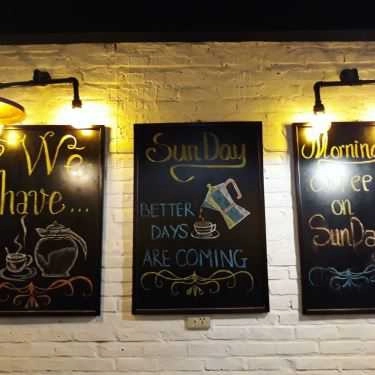 We
have...
SunDay
BETTER
DAYS
ARE COMING
Morning
Coffee
on
SunDay